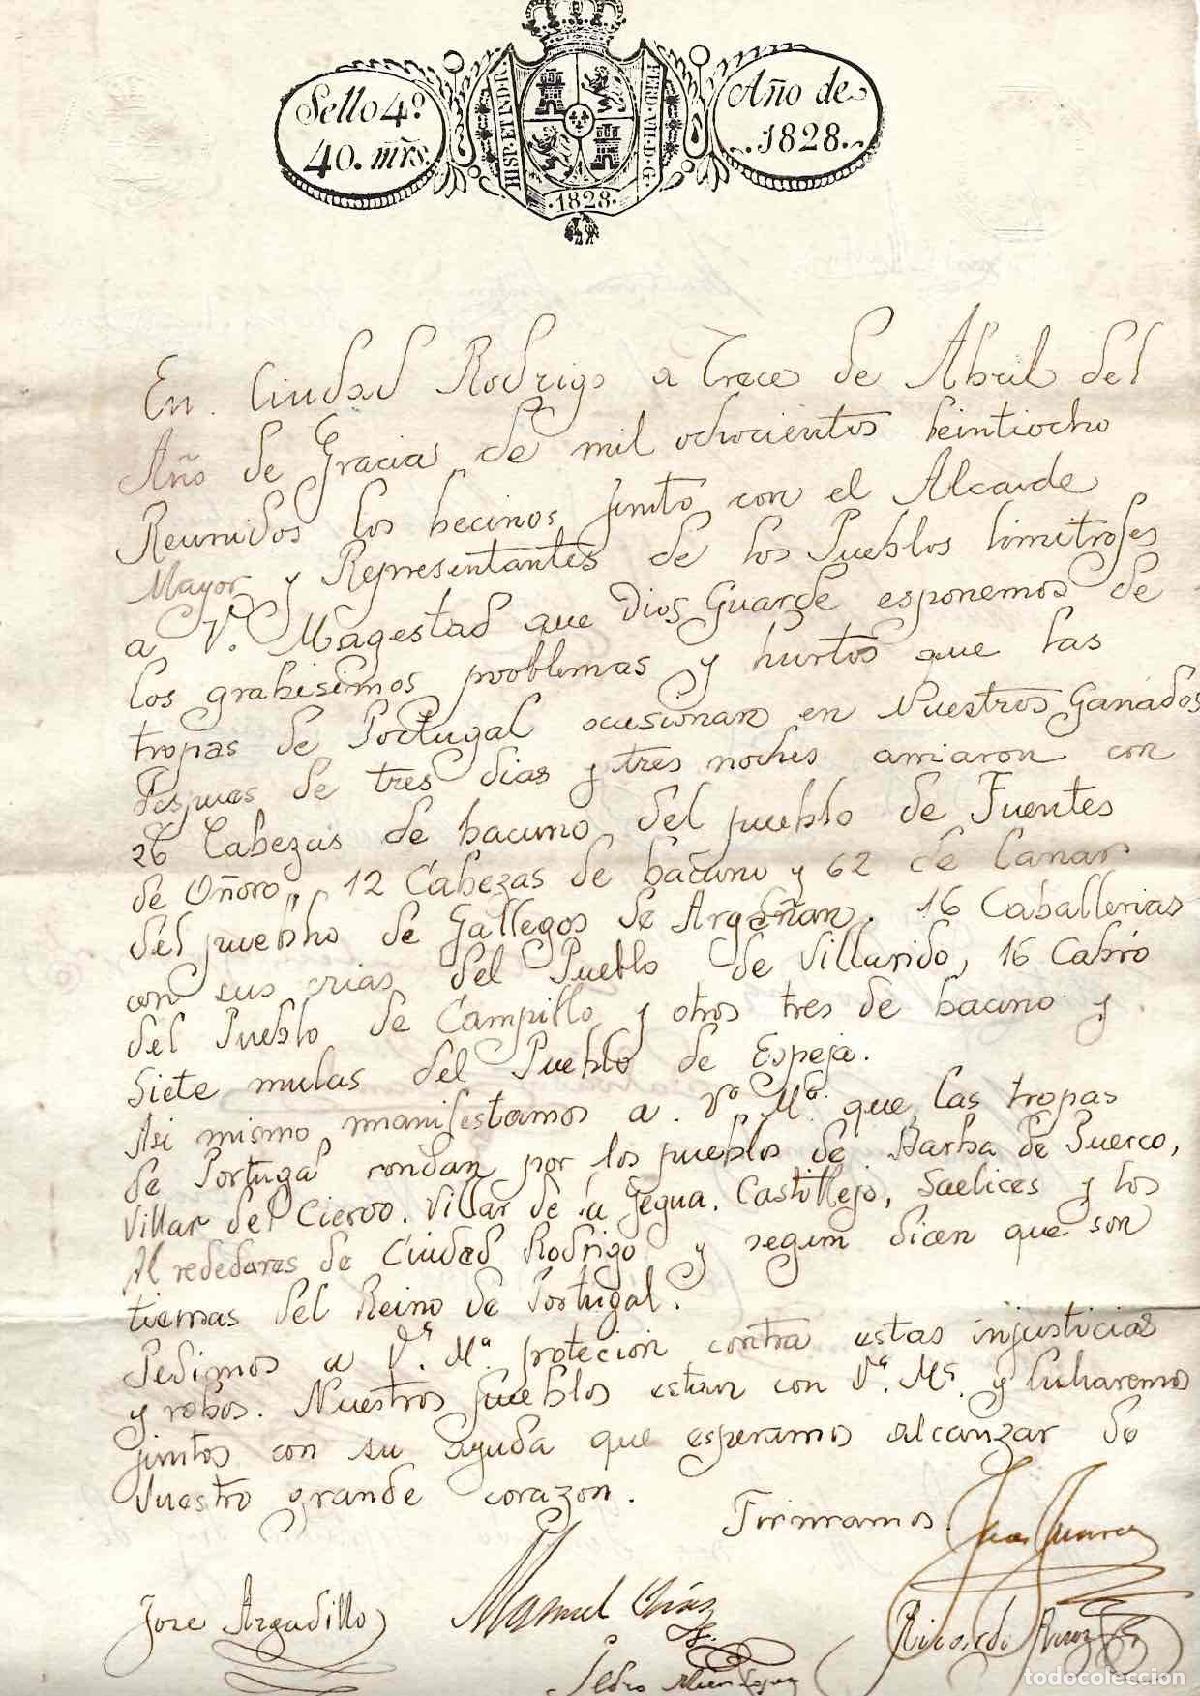 Sello 4º
40. mrs.
HISP. ET IND. R.
FERD. VII. D. G.
·1828·
Año de
1828.
En Ciudad Rodrigo a Trece de Abril del
Año de Gracia de mil ochocientos beintiocho
Reunidos los becinos junto con el Alcaide
Mayor y Representantes de los Pueblos limitrofes
a Vª Magestad que Dios Guarde esponemos de
los grabisimos problemas y hurtos que las
tropas de Portugal ocasionan en Nuestros Ganados
Despues de tres dias y tres noches arriaron con
26 Cabezas de bacuno, del pueblo de Fuentes
de Oñoro, 12 Cabezas de bacuno y 62 de Lanar
del pueblo de Gallegos de Argañan. 16 Caballerias
con sus crias del Pueblo de Villarido, 16 Cabró
del Pueblo de Campillo y otros tres de bacuno y
Siete mulas del Pueblo de Espeja.
Asi mismo manifestamos a Vª Mª que las tropas
de Portugal rondan por los pueblos de Barba de Puerco,
Villar del Ciervo. Villar de la Yegua. Castillejo, Saelices y los
Al rededores de Ciudad Rodrigo y segun dicen que son
tierras del Reino de Portugal.
Pedimos a Vª. Mª. protecion contra estas injusticias
y robos. Nuestros pueblos estan con Vª. Mª. y lucharemos
juntos con su ayuda que esperamos alcanzar de
Vuestro grande corazon.
Firmamos
Jose Argadillo
Manuel
Ricardo
Pedro
todocoleccion